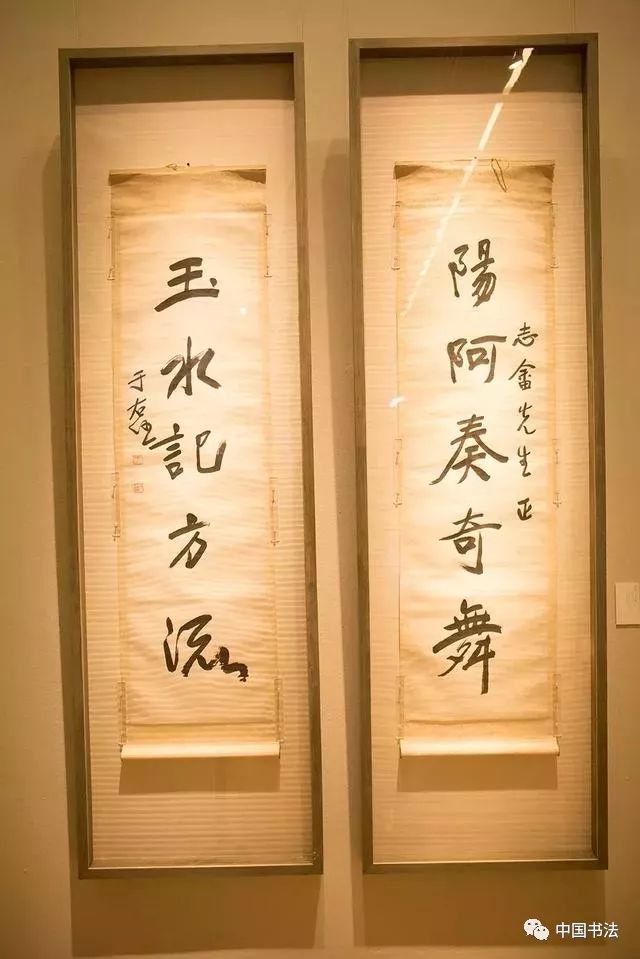 陽阿奏奇舞
志畬先生正
玉水記方流
于右任
中国书法